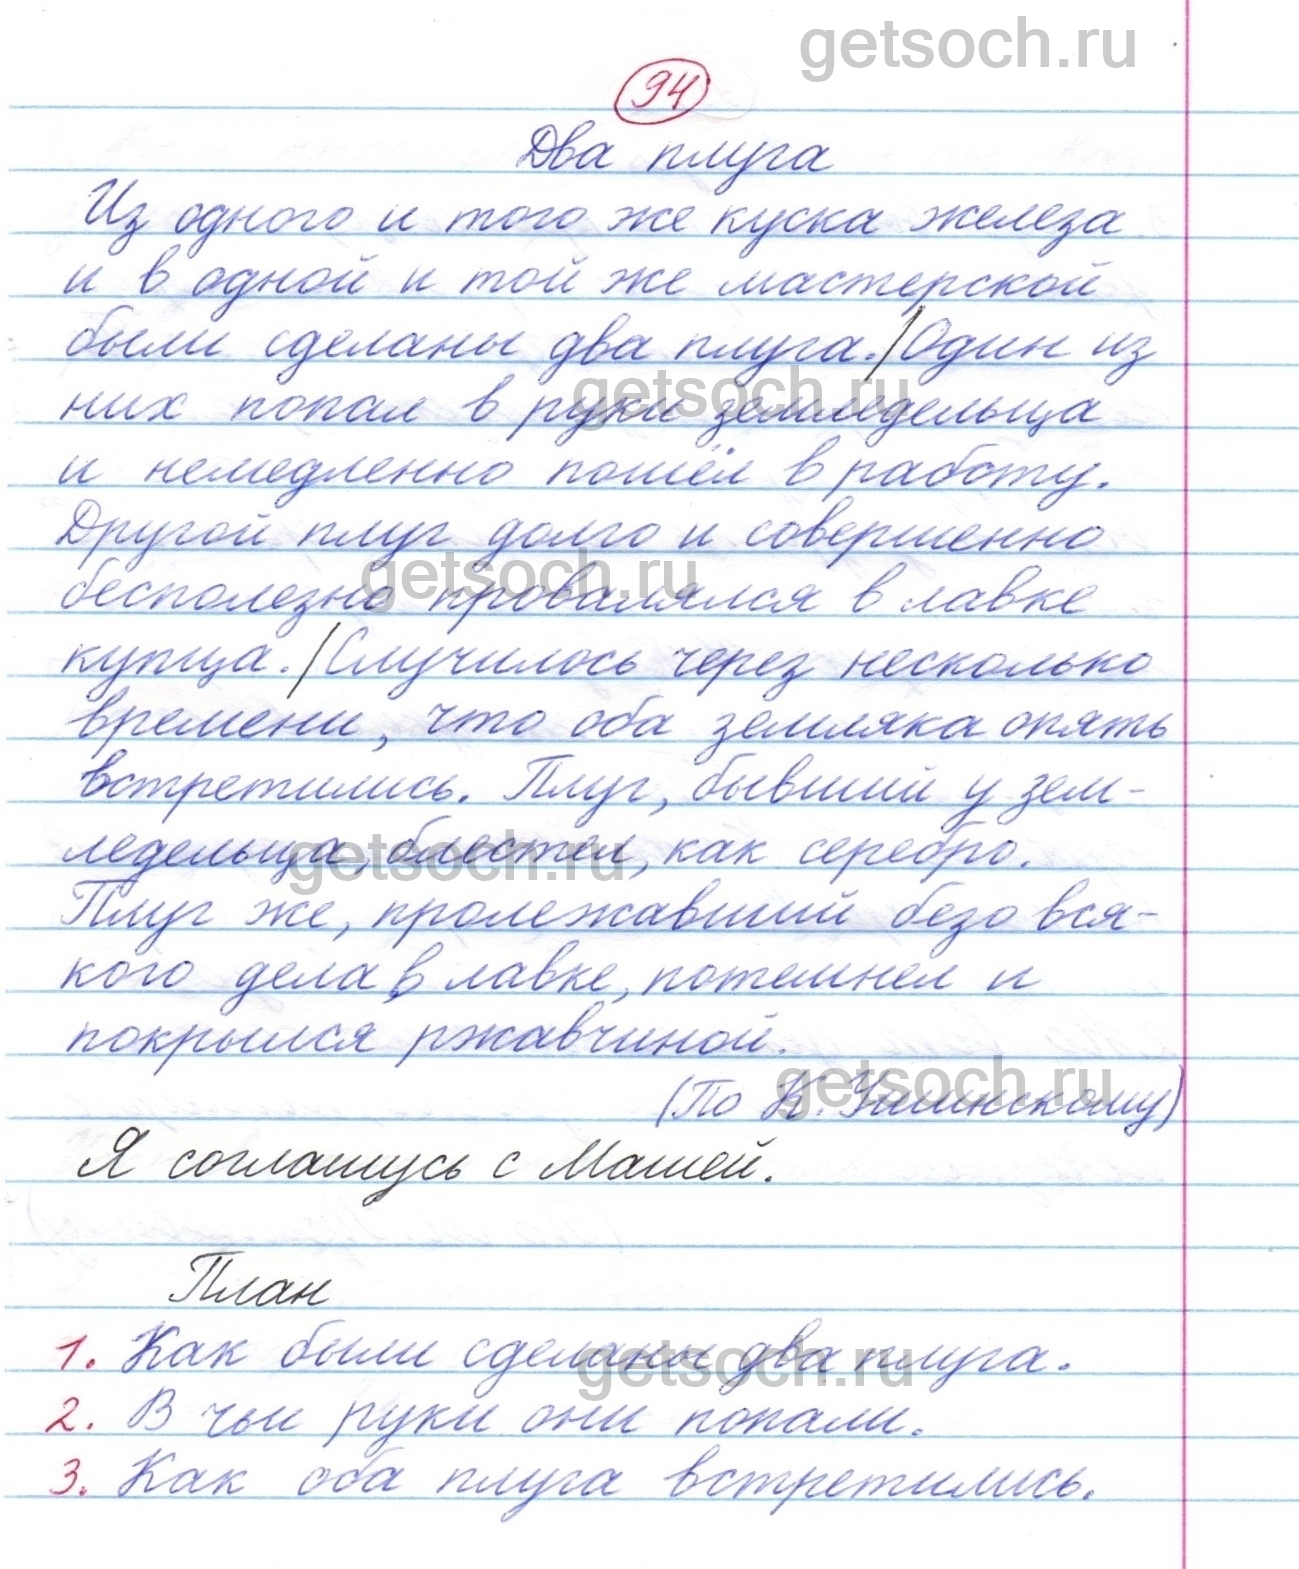 getsoch.ru
94
Два плуга
Из одного и того же куска железа
и в одной и той же мастерской
были сделаны два плуга./Один из
getsoch.ru
них попал в руки земледельца
и немедленно пошёл в работу.
Другой плуг долго и совершенно
getsoch.ru
бесполезно провалялся в лавке
купца./Случилось через несколько
времени, что оба земляка опять
встретились. Плуг, бывший у зем-
getsoch.ru
ледельца, блестел, как серебро.
Плуг же, пролежавший безо вся-
кого дела в лавке, потемнел и
покрылся ржавчиной.
getsoch.ru
(По К. Ушинскому)
Я соглашусь с Машей.
План
getsoch.ru
1. Как были сделаны два плуга.
2. В чьи руки они попали.
3. Как оба плуга встретились.